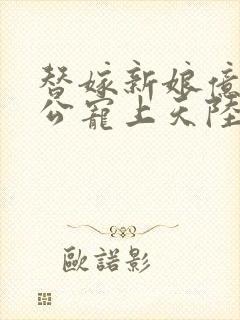 替嫁新娘億
公寵上天陸
歐諾影